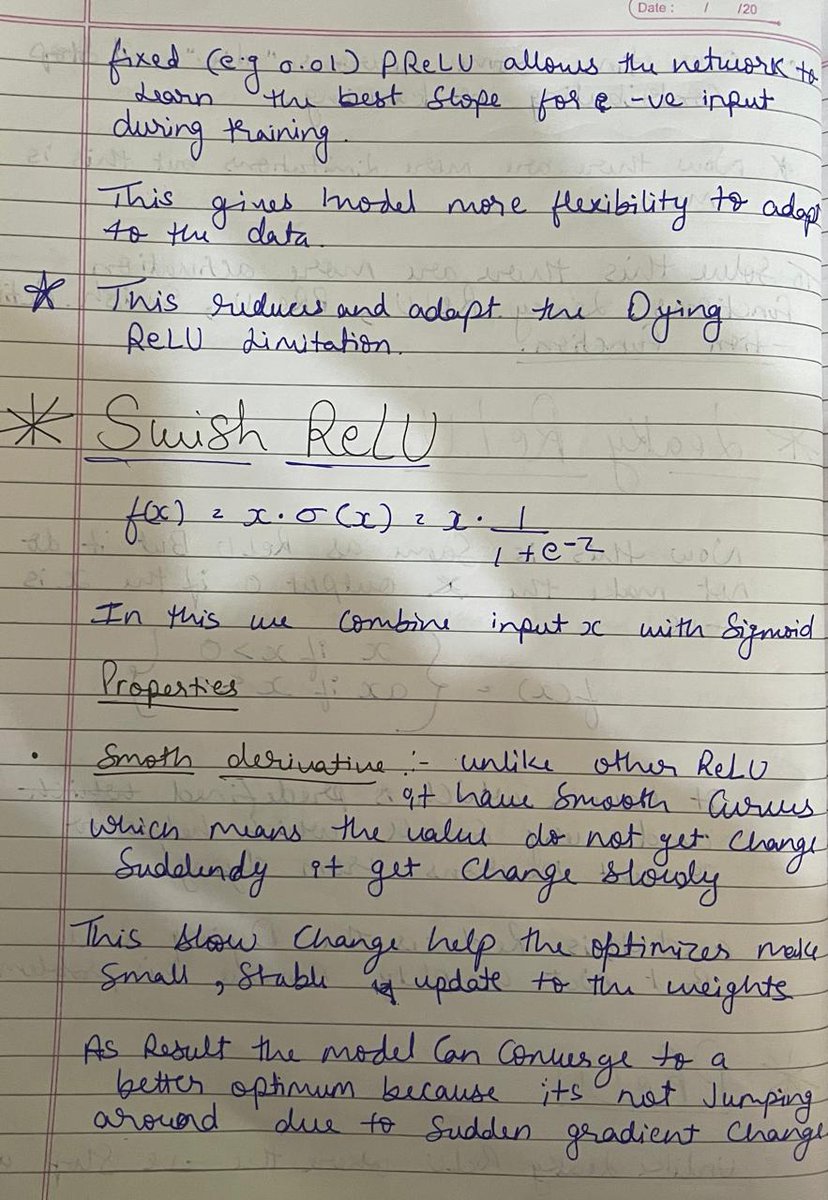 Date : / /20
fixed (e.g "0.01) PReLU allows the network to
learn the best slope for -ve input
during training.
This gives model more flexibility to adapt
to the data.
* This reduces and adapt the Dying
ReLU Limitation.
* Swish ReLU
f(x) = x · σ(x) = x · 1 / 1 + e^-z
In this we combine input x with Sigmoid
Properties
• Smoth derivative :- unlike other ReLU
it have Smooth Curves
which means the value do not get change
Suddlendy it get change slowly
This slow change help the optimizes make
Small, Stable update to the weights
As Result the model can converge to a
better optimum because its not Jumping
around due to sudden gradient change